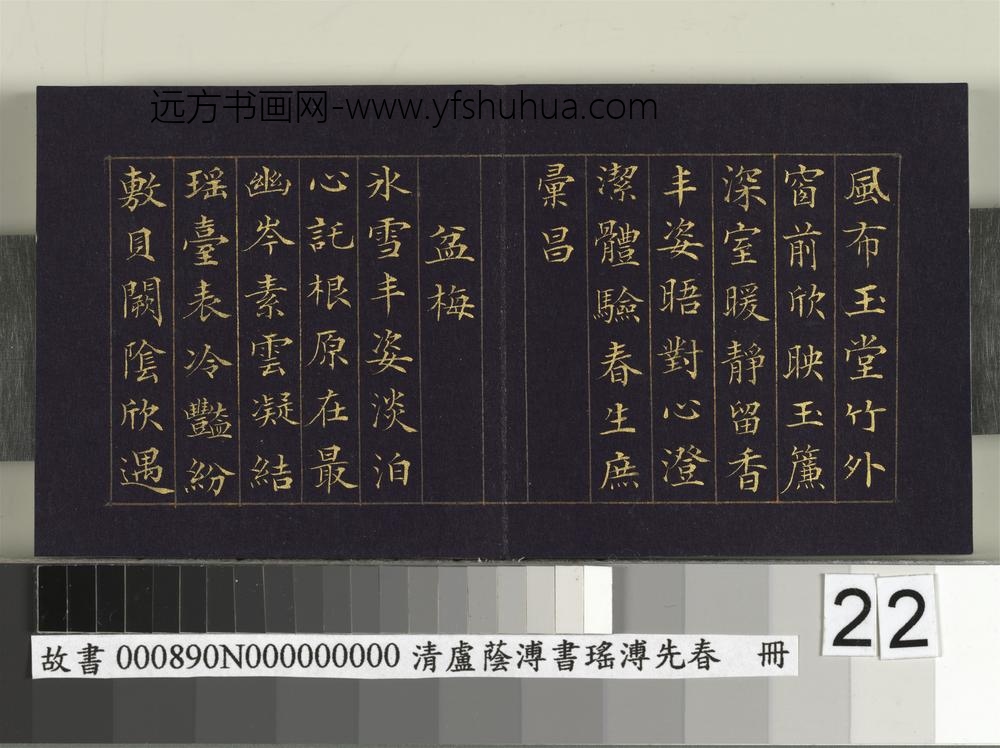 远方书画网-www.yfshuhua.com
風布玉堂竹外
窗前欣映玉簾
深室暖靜留香
丰姿晤對心澄
潔體驗春生庶
彙昌
盆梅
氷雪丰姿淡泊
心託根原在最
幽岑素雲凝結
瑶臺表冷豔紛
敷貝闕陰欣遇
22
故書 000890N000000000 清盧蔭溥書瑤溥先春 冊